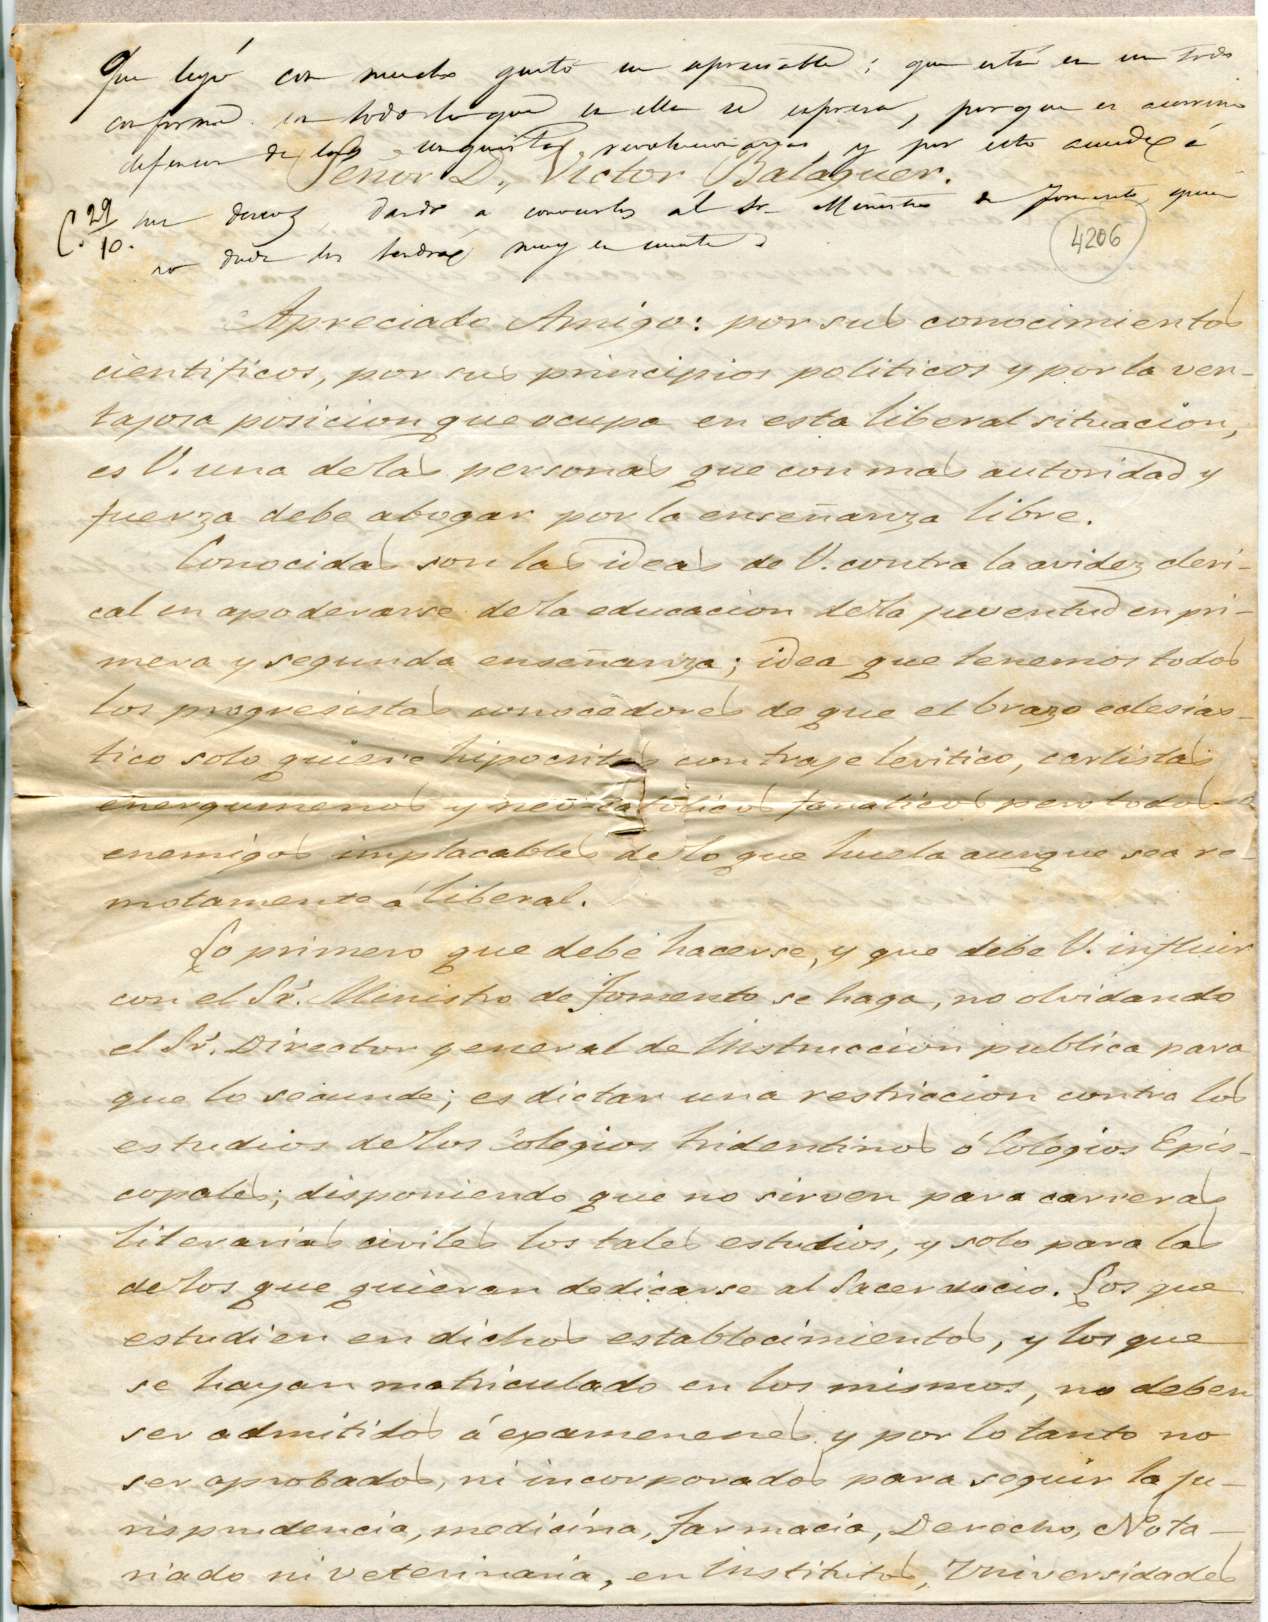 Que leyó con mucho gusto su apreciable; que está en un todo
conforme en todo lo que en ella se espresa, porque es acerrimo
defensor de las conquistas revolucionarias, y por esto accede á
Señor D. Victor Balaguer.
sus deseos dando á conocerlos al Sr. Ministro de Fomento, quien
C. 29/10.
no duda los tendrá muy en cuenta.
4206
Apreciado Amigo: por sus conocimientos
cientificos, por sus principios politicos y por la ven-
tajosa posicion que ocupa en esta liberal situacion,
es V. una de las personas que con mas autoridad y
fuerza debe abogar por la enseñanza libre.
Conocidas son las ideas de V. contra la avidez cleri-
cal en apoderarse de la educacion de la juventud en pri-
mera y segunda enseñanza; idea que tenemos todos
los progresistas conocedores de que el brazo eclesiás-
tico solo quiere hipocritas con traje levitico, carlistas
energumenos y neo-catolicos fanaticos pero todos
enemigos implacables de lo que huela aunque sea re-
motamente á liberal.
Lo primero que debe hacerse, y que debe V. influir
con el Sr. Ministro de Fomento se haga, no olvidando
el Sr. Director general de Instruccion publica para
que lo secunde; es dictar una restriccion contra los
estudios de los Colegios tridentinos ó Colegios Epis-
copales; disponiendo que no sirven para carreras
literarias civiles los tales estudios, y solo para las
de los que quieran dedicarse al Sacerdocio. Los que
estudien en dichos establecimientos, y los que
se hayan matriculado en los mismos, no deben
ser admitidos á examenenes y por lo tanto no
ser aprobados, ni incorporados para seguir la ju-
risprudencia, medicina, farmacia, Derecho, Nota-
riado ni veterinaria, en Institutos, Universidades